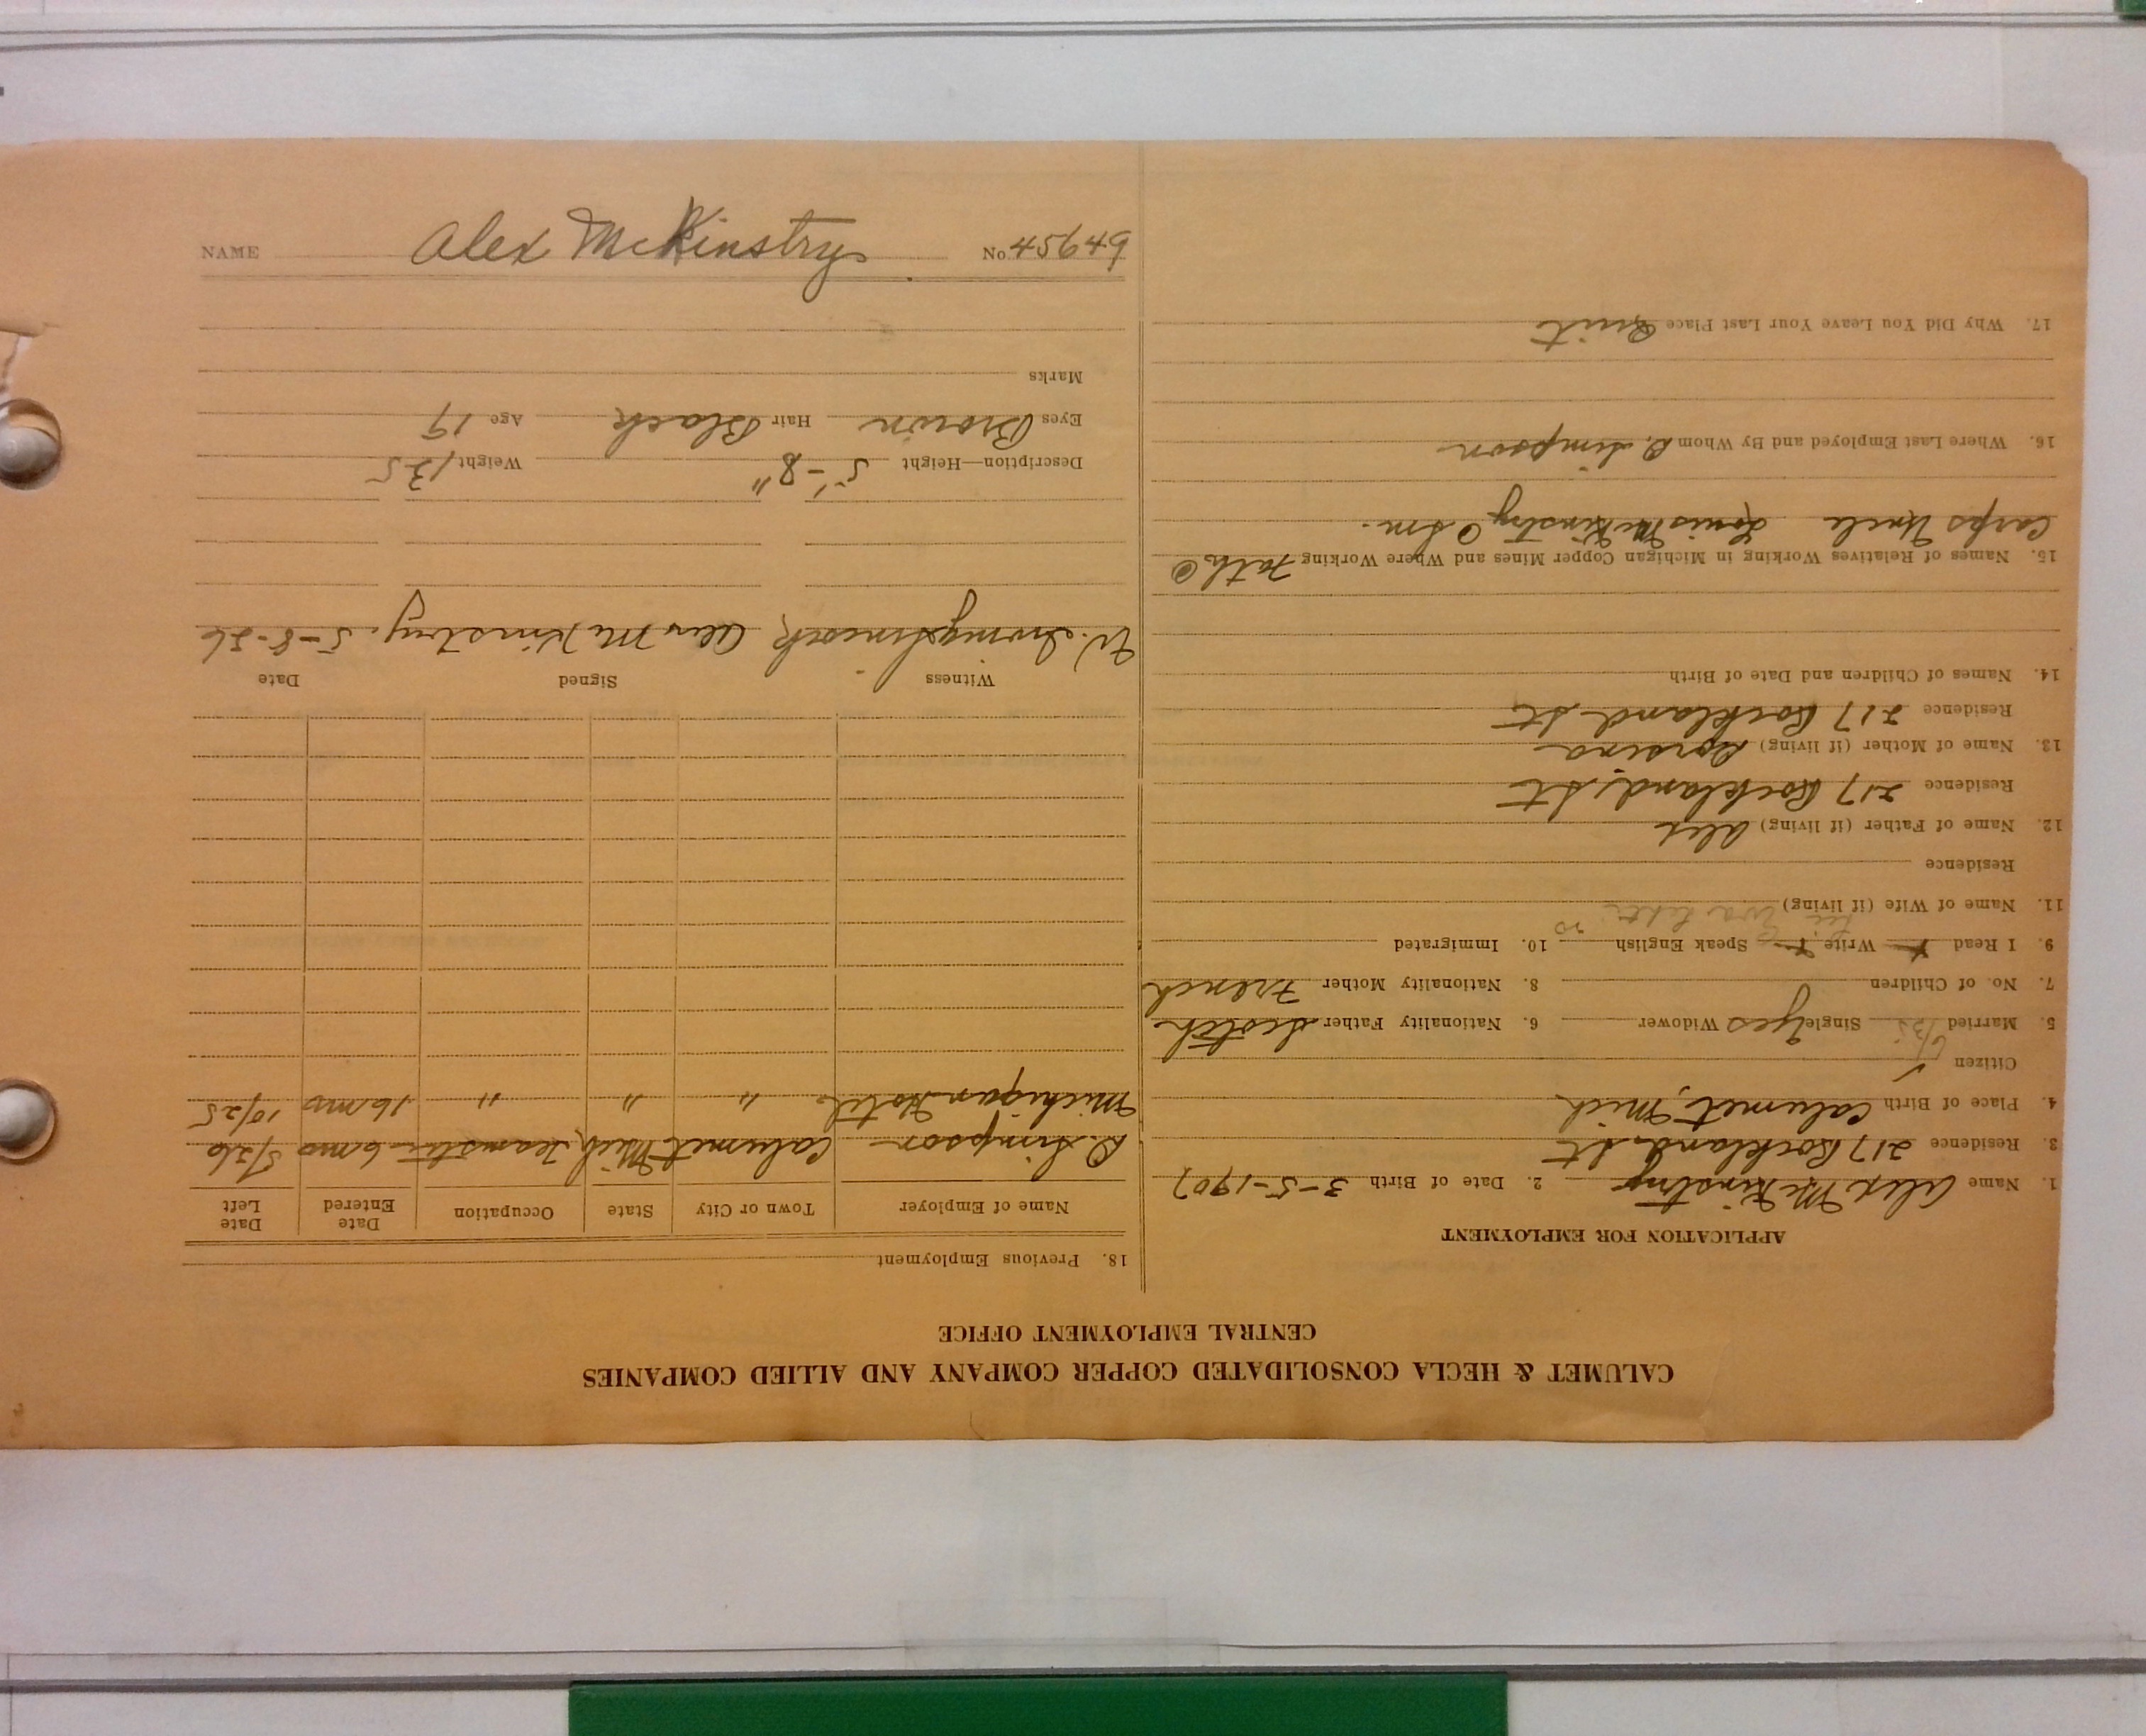 CALUMET & HECLA CONSOLIDATED COPPER COMPANY AND ALLIED COMPANIES
CENTRAL EMPLOYMENT OFFICE
APPLICATION FOR EMPLOYMENT
1. Name Alex McKinstry 2. Date of Birth 3-5-1907
3. Residence 217 Rockland St
4. Place of Birth Calumet, Mich
Citizen
5. Married Single yes Widower 6. Nationality Father Scotch
7. No. of Children 8. Nationality Mother French
9. I Read Write Speak English 10. Immigrated
11. Name of Wife (if living) Eva
Residence
12. Name of Father (if living) Alex
Residence 217 Rockland, St
13. Name of Mother (if living)
Residence 217 Rockland St
14. Names of Children and Date of Birth
15. Names of Relatives Working in Michigan Copper Mines and Where Working Fath @
Carps Uncle Louis McKinstry @ Sm.
16. Where Last Employed and By Whom D. Simpson
17. Why Did You Leave Your Last Place Quit
18. Previous Employment
Name of Employer Town or City State Occupation Date Entered Date Left
D. Simpson Calumet Mich Teamster 6 mo 5/26
Michigan Hotel " " " 16 mo 10/25
Witness Signed Date
Alex McKinstry. 5-8-26
Description—Height 5'-8" Weight 135
Eyes Brown Hair Black Age 19
Marks
NAME Alex McKinstry No. 45649